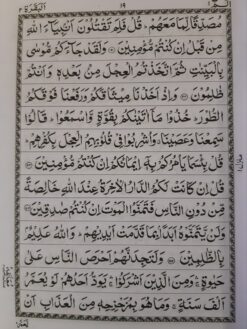 الٓمّٓ ١
١٩
البقرة ٢
مُصَدِّقًا لِّمَا مَعَهُمْ ؕ قُلْ فَلِمَ تَقْتُلُوْنَ اَنْۢبِیَآءَ اللّٰهِ
مِنْ قَبْلُ اِنْ كُنْتُمْ مُّؤْمِنِیْنَ ۝ وَلَقَدْ جَآءَكُمْ مُّوْسٰی
بِالْبَیِّنٰتِ ثُمَّ اتَّخَذْتُمُ الْعِجْلَ مِنْۢ بَعْدِهٖ وَاَنْتُمْ
ظٰلِمُوْنَ ۝ وَاِذْ اَخَذْنَا مِیْثَاقَكُمْ وَرَفَعْنَا فَوْقَكُمُ
الطُّوْرَ ؕ خُذُوْا مَاۤ اٰتَیْنٰكُمْ بِقُوَّةٍ وَّاسْمَعُوْا ؕ قَالُوْا
سَمِعْنَا وَعَصَیْنَا ۗ وَاُشْرِبُوْا فِیْ قُلُوْبِهِمُ الْعِجْلَ بِكُفْرِهِمْ ؕ
قُلْ بِئْسَمَا یَاْمُرُكُمْ بِهٖۤ اِیْمَانُكُمْ اِنْ كُنْتُمْ مُّؤْمِنِیْنَ ۝
قُلْ اِنْ كَانَتْ لَكُمُ الدَّارُ الْاٰخِرَةُ عِنْدَ اللّٰهِ خَالِصَةً
مِّنْ دُوْنِ النَّاسِ فَتَمَنَّوُا الْمَوْتَ اِنْ كُنْتُمْ صٰدِقِیْنَ ۝
وَلَنْ یَّتَمَنَّوْهُ اَبَدًۢا بِمَا قَدَّمَتْ اَیْدِیْهِمْ ؕ وَاللّٰهُ عَلِیْمٌۢ
بِالظّٰلِمِیْنَ ۝ وَلَتَجِدَنَّهُمْ اَحْرَصَ النَّاسِ عَلٰی
حَیٰوةٍ ۛۚ وَمِنَ الَّذِیْنَ اَشْرَكُوْا ۛۚ یَوَدُّ اَحَدُهُمْ لَوْ یُعَمَّرُ
اَلْفَ سَنَةٍ ۚ وَمَا هُوَ بِمُزَحْزِحِهٖ مِنَ الْعَذَابِ اَنْ